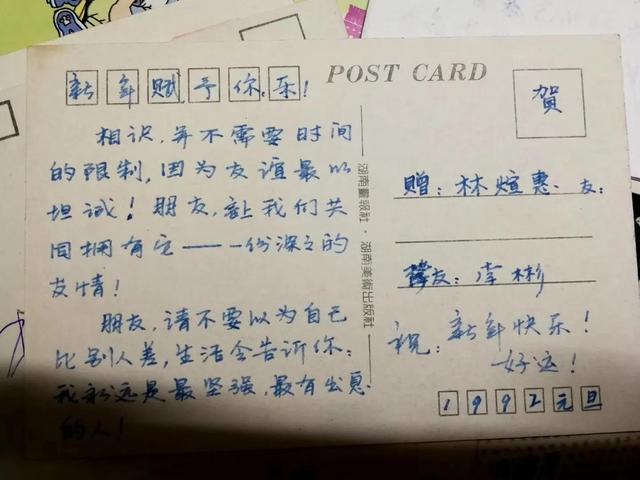 新年赋予你，乐！
POST CARD
賀
相识，并不需要时间
的限制，因为友谊最以
坦诚！朋友，让我们共
同拥有它———一份深々的
友情！
朋友，请不要以为自己
比别人差，生活会告诉你：
我永远是最坚强，最有出息
的人！
湖南畫報社·湖南美術出版社
赠：林煊惠、友：
友：李彬
祝：新年快乐！
好运！
1992元旦